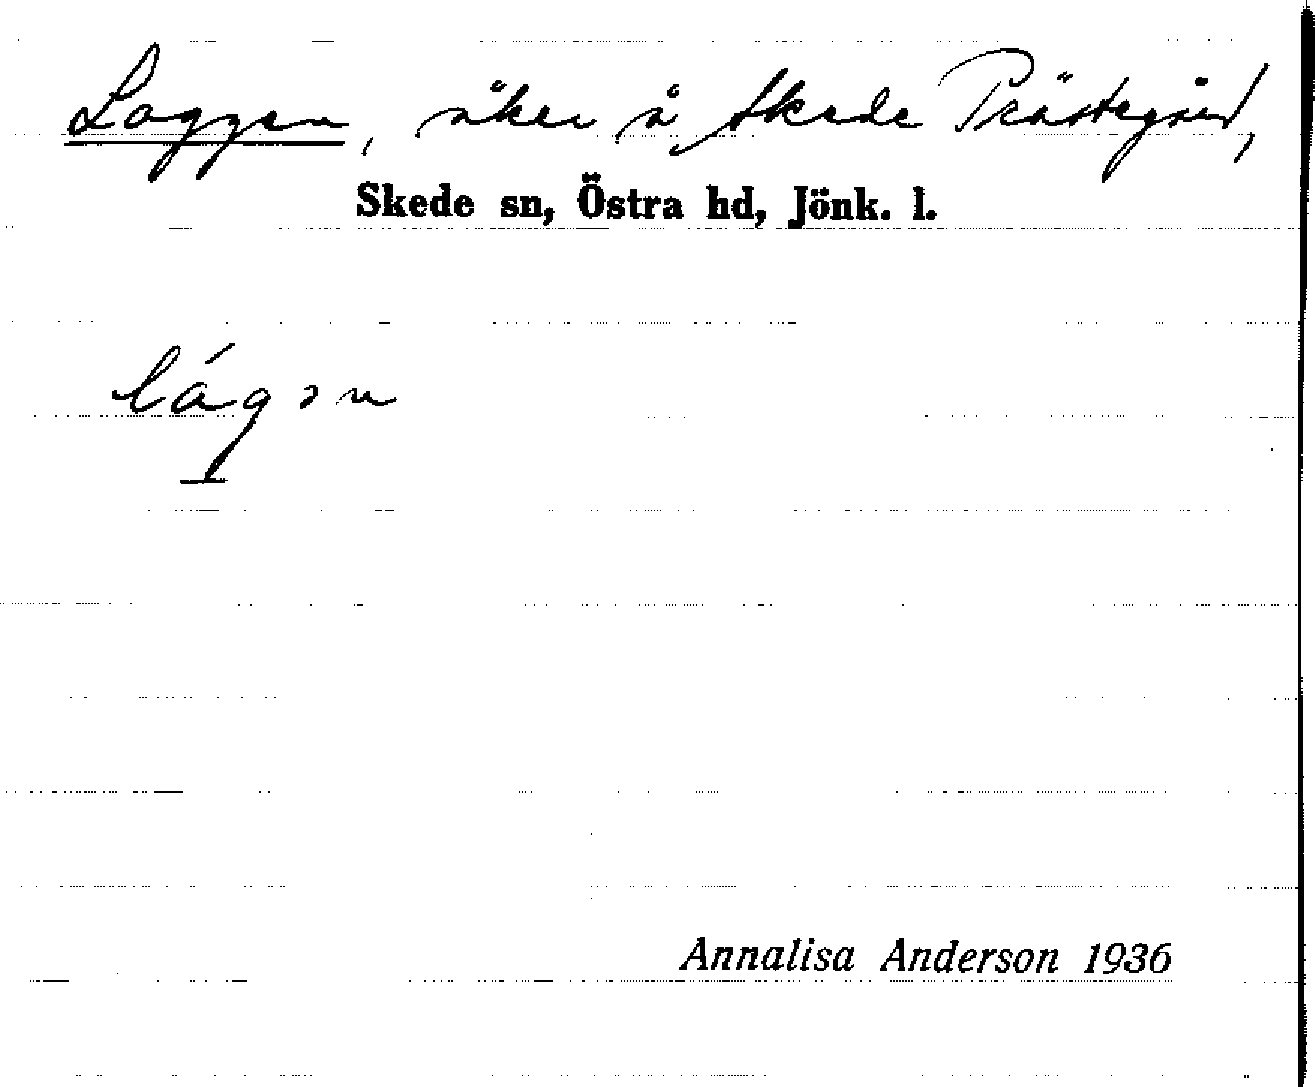 Laggen, åker å Skede Prästegård,
Skede sn, Östra hd, Jönk. l.
lágən
Annalisa Anderson 1936